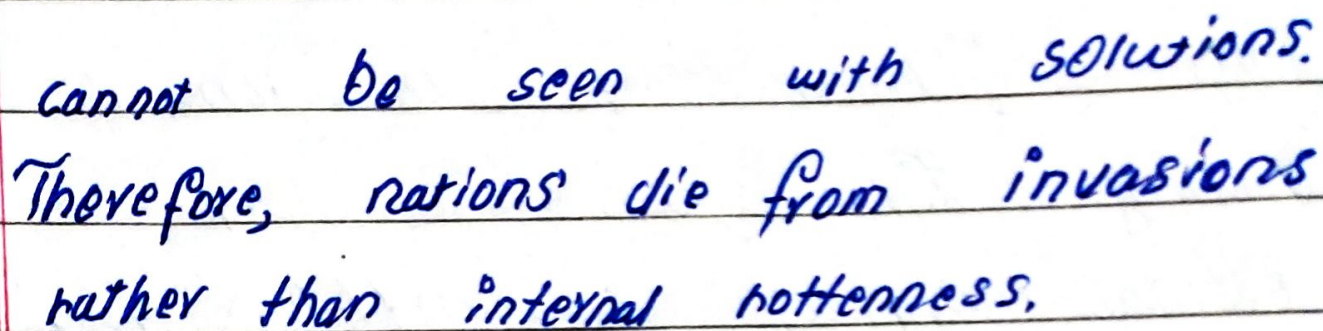 cannot be seen with solutions.
Therefore, nations die from invasions
rather than internal rottenness.